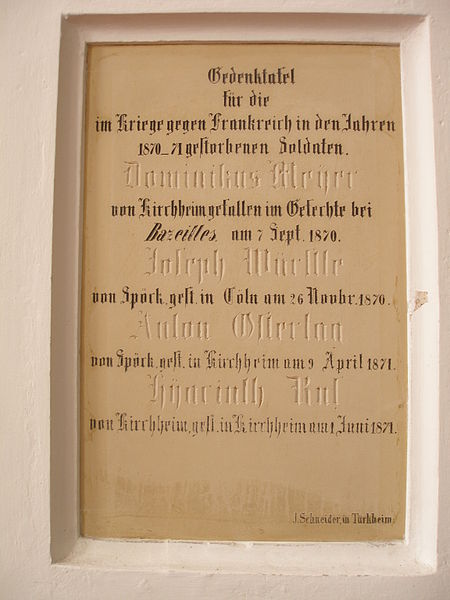 Gedenktafel
für die
im Kriege gegen Frankreich in den Jahren
1870_71 gestorbenen Soldaten.
Dominikus Meyer
von Kirchheim gefallen im Gefechte bei
Bazeilles, am 7 Sept. 1870.
Joseph Würstle
von Spöck, gest. in Cöln am 26 Novbr. 1870.
Anton Ostertag
von Spöck, gest. in Kirchheim am 9 April 1871.
Hÿacinth Kus
von Kirchheim, gest. in Kirchheim am 1, Juni 1871.
J. Schneider, in Türkheim.